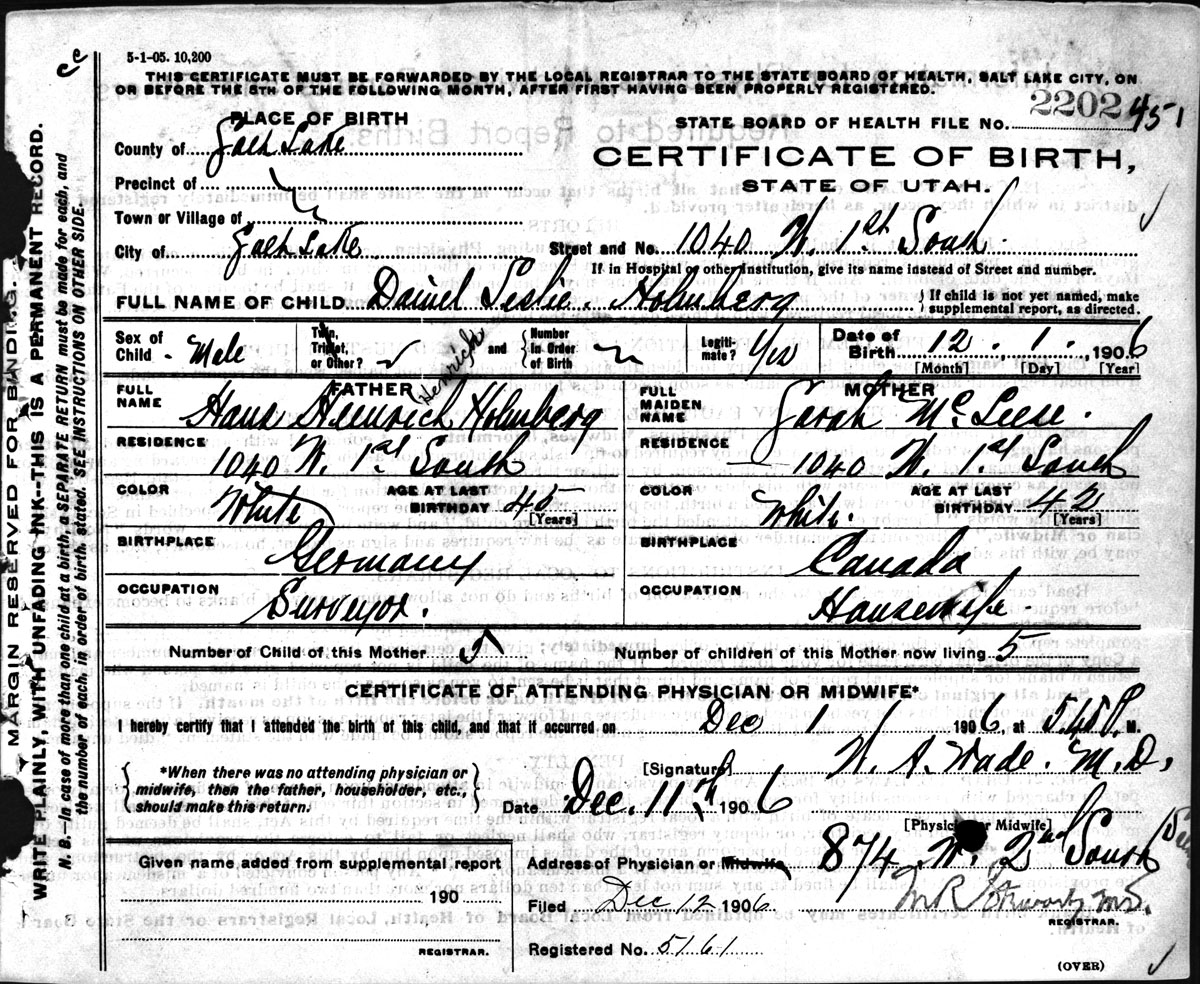 5-1-05. 10,200
THIS CERTIFICATE MUST BE FORWARDED BY THE LOCAL REGISTRAR TO THE STATE BOARD OF HEALTH, SALT LAKE CITY, ON
OR BEFORE THE 5TH OF THE FOLLOWING MONTH, AFTER FIRST HAVING BEEN PROPERLY REGISTERED.
PLACE OF BIRTH
STATE BOARD OF HEALTH FILE No. 2202 451
County of Salt Lake
CERTIFICATE OF BIRTH,
Precinct of
STATE OF UTAH.
Town or Village of
City of Salt Lake
Street and No. 1040 W. 1st South
If in Hospital or other Institution, give its name instead of Street and number.
FULL NAME OF CHILD Daniel Leslie Holmberg
If child is not yet named, make
supplemental report, as directed.
Sex of Child - Male
Twin, Triplet, or Other?
and
Number in Order of Birth
Legitimate? Yes
Date of Birth 12 . 1 , 1906
[Month] [Day] [Year]
FATHER
Henrich
FULL NAME Hans Heinrich Holmberg
RESIDENCE 1040 W. 1st South
COLOR White
AGE AT LAST BIRTHDAY 45
[Years]
BIRTHPLACE Germany
OCCUPATION Surveyor.
MOTHER
FULL MAIDEN NAME Sarah McLeese.
RESIDENCE 1040 W. 1st South
COLOR White.
AGE AT LAST BIRTHDAY 42
[Years]
BIRTHPLACE Canada
OCCUPATION Housewife.
Number of Child of this Mother 5
Number of children of this Mother now living 5
CERTIFICATE OF ATTENDING PHYSICIAN OR MIDWIFE*
I hereby certify that I attended the birth of this child, and that it occurred on Dec 1 1906, at 5.45 P. M.
*When there was no attending physician or
midwife, then the father, householder, etc.,
should make this return.
[Signature] W. A. Wade. M.D.
Date Dec. 11th 1906
[Physician or Midwife]
Given name added from supplemental report
190
REGISTRAR.
Address of Physician or Midwife 874 W. 2nd South
Filed Dec 12 1906
M R Stewart, M.D.
REGISTRAR.
Registered No. 5161
(OVER)
MARGIN RESERVED FOR BINDING.
WRITE PLAINLY, WITH UNFADING INK--THIS IS A PERMANENT RECORD.
N. B.--In case of more than one child at a birth, a SEPARATE RETURN must be made for each, and
the number of each, in order of birth, stated. SEE INSTRUCTIONS ON OTHER SIDE.